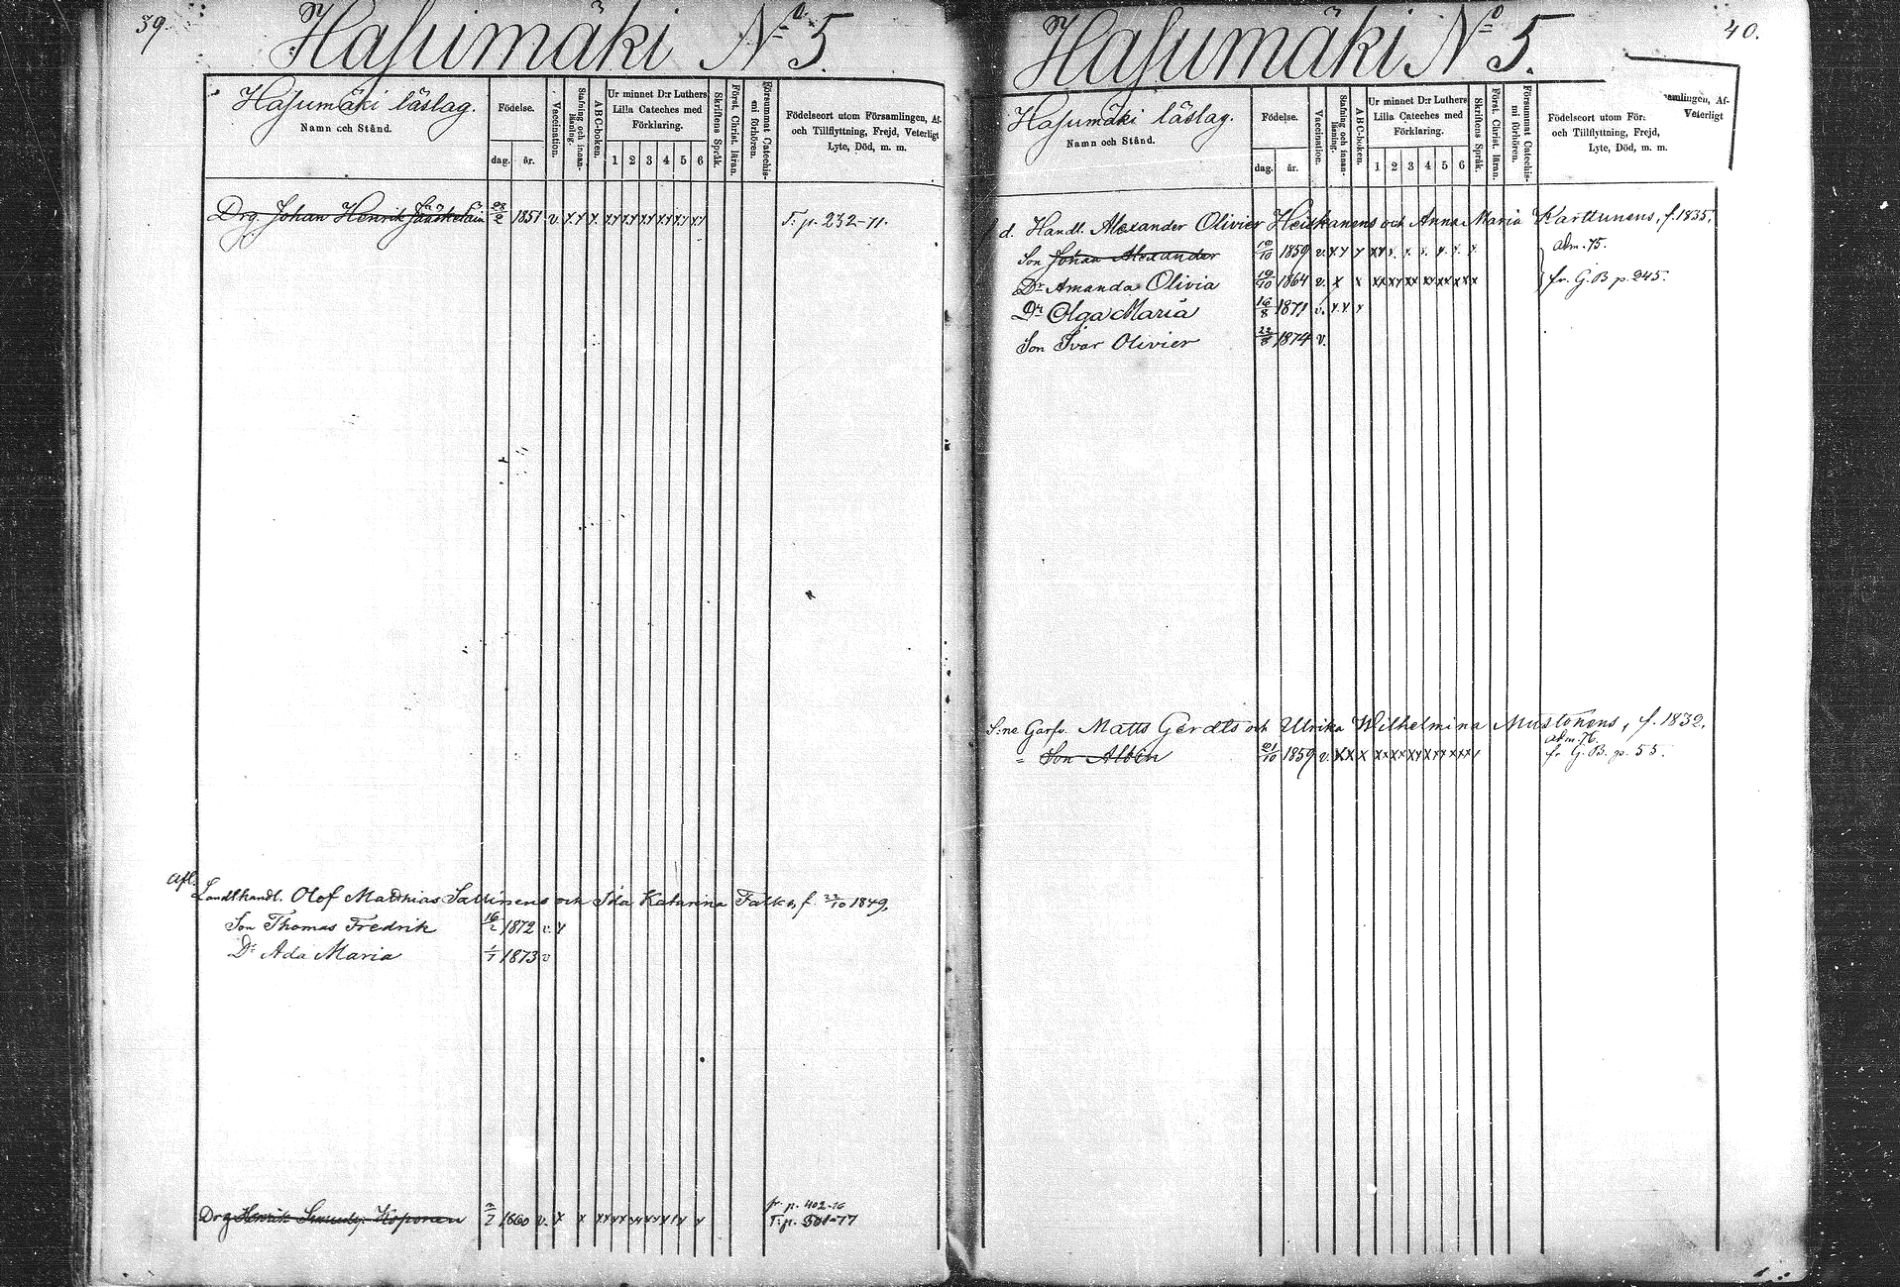 39.
Hasumäki No 5.
Hasumäki läslag.
Namn och Stånd.
Födelse.
dag. år.
Vaccination.
Stafning och innan-läsning.
ABC-boken.
Ur minnet D:r Luthers
Lilla Cateches med
Förklaring.
1 2 3 4 5 6
Skriftens Språk.
Först. Christ. läran.
Försummat Catechis-
mi förhören.
Födelseort utom Församlingen, Af-
och Tillflyttning, Frejd, Veterligt
Lyte, Död, m. m.
Drg. Johan Henrik Jääskeläin 23/2 1851 v. x x x xx xx xx xx xx xx T. p. 232-71.
Afl.
Landthandl. Olof Matthias Sallinens och Ida Katarina Falks, f. 22/10 1849.
Son Thomas Fredrik 16/2 1872 v. x
Dr Ada Maria 1/1 1873 v
fr. p. 402-76
Drg Henrik Koponen 2/7 1860 v. x x xx xx xx xx xx x T. p. 501-77
40.
Hasumäki No 5.
Hasumäki läslag.
Namn och Stånd.
Födelse.
dag. år.
Vaccination.
Stafning och innan-läsning.
ABC-boken.
Ur minnet D:r Luthers
Lilla Cateches med
Förklaring.
1 2 3 4 5 6
Skriftens Språk.
Först. Christ. läran.
Försummat Catechis-
mi förhören.
samlingen, Af-
Veterligt
Födelseort utom För:
och Tillflyttning, Frejd,
Lyte, Död, m. m.
f. d. Handl. Alexander Olivier Heiskanens och Anna Maria Karttunens, f. 1835.
Son Johan Alexander 10/10 1859 v. x x x xx x. x. x. x. x. x adm. 75.
Dr Amanda Olivia 19/10 1864 v. x x xx xx xx xx xx xx fr. G. B p. 245.
Dr Olga Maria 16/8 1871 v. x x x
Son Ivar Olivier 22/8 1874 v.
S:ne Garfv. Matts Gerdts och Ulrika Wilhelmina Mustonens, f. 1832.
adm. 76.
" Son Albin 21/10 1859 v. x x x xx xx xx xx xx xx fr. G. B. p. 55.